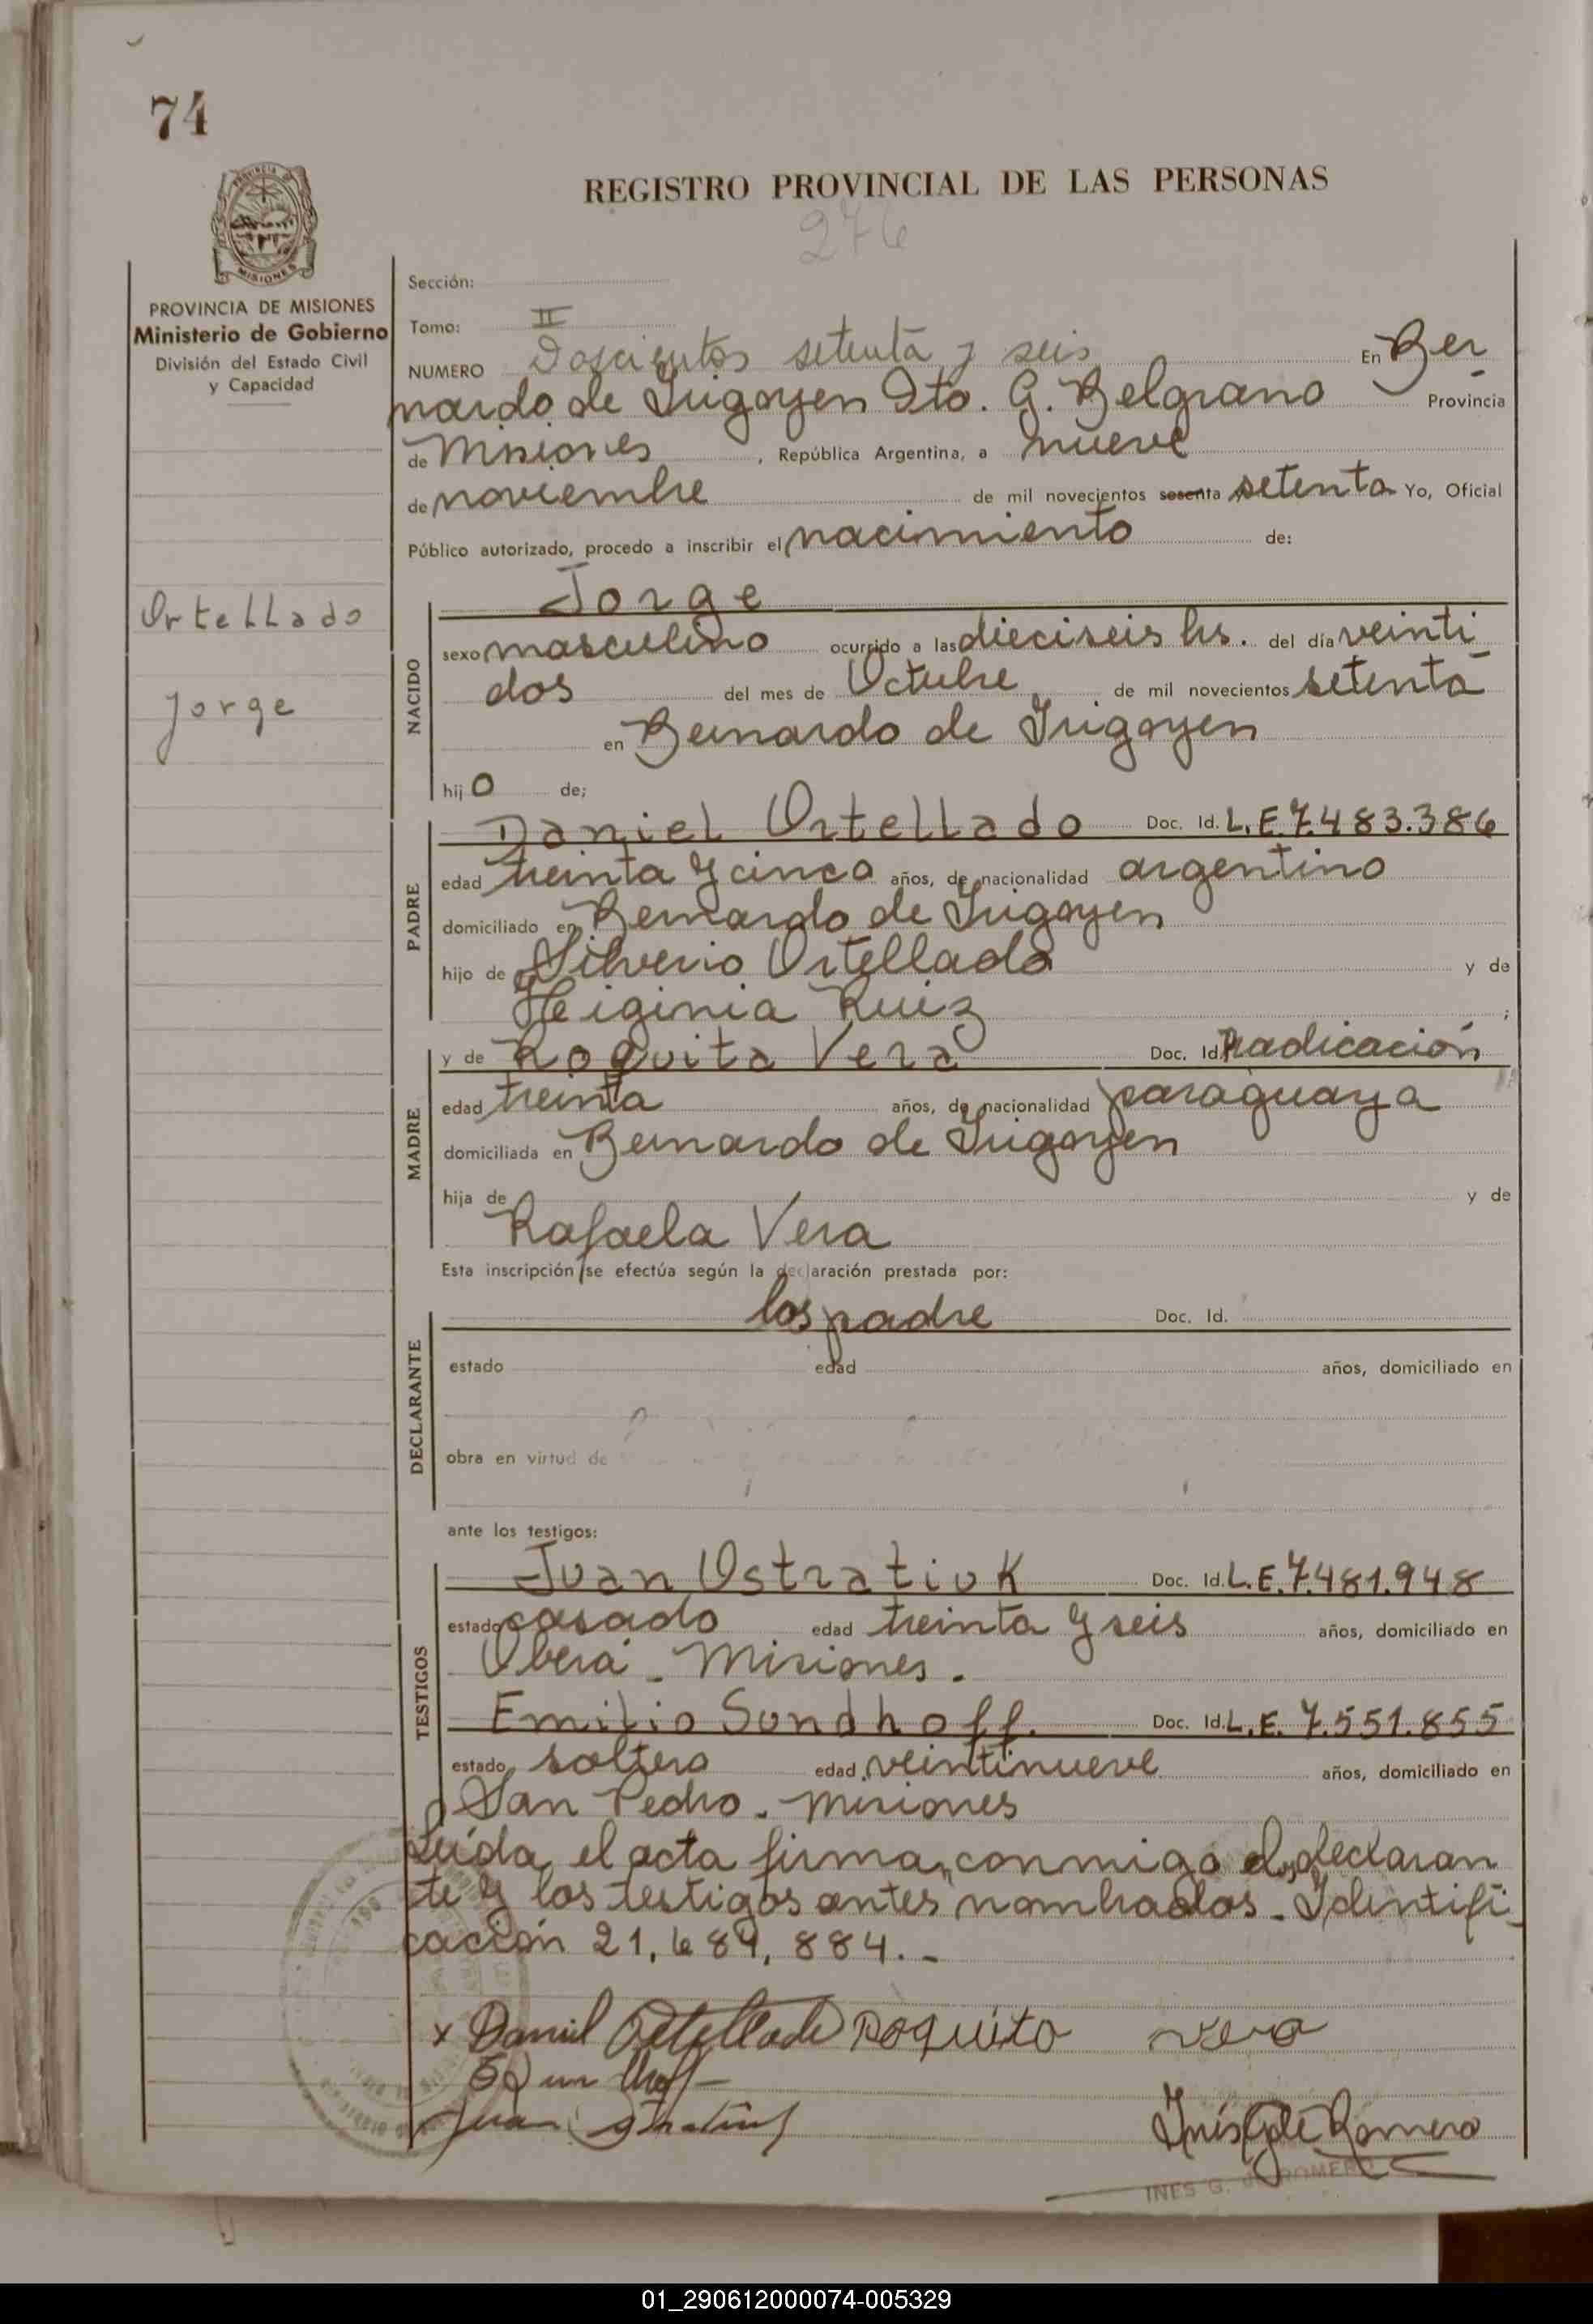 74
REGISTRO PROVINCIAL DE LAS PERSONAS
276
PROVINCIA DE MISIONES
Ministerio de Gobierno
División del Estado Civil
y Capacidad
Ortellado
Jorge
Sección:
Tomo: II
NUMERO Doscientos setenta y seis En Ber
nardo de Irigoyen Dto. G. Belgrano Provincia
de Misiones, República Argentina, a nueve
de noviembre de mil novecientos sesenta setenta Yo, Oficial
Público autorizado, procedo a inscribir el nacimiento de:
NACIDO
Jorge
sexo masculino ocurrido a las dieciseis hs. del día veinti
dos del mes de Octubre de mil novecientos setenta
en Bernardo de Irigoyen
hijo de;
PADRE
Daniel Ortellado Doc. Id. L.E.7.483.386
edad treinta y cinco años, de nacionalidad argentino
domiciliado en Bernardo de Irigoyen
hijo de Silverio Ortellado y de
Heiginia Ruiz ;
MADRE
y de Roquita Vera Doc. Id. Radicación
edad treinta años, de nacionalidad paraguaya
domiciliada en Bernardo de Irigoyen
hija de y de
Rafaela Vera
Esta inscripción se efectúa según la declaración prestada por:
DECLARANTE
los padre Doc. Id.
estado edad años, domiciliado en
obra en virtud de
ante los testigos:
TESTIGOS
Juan Ostratiuk Doc. Id. L.E.7.481.948
estado casado edad treinta y seis años, domiciliado en
Oberá - Misiones.
Emilio Sundhoff. Doc. Id. L.E. 7.551.855
estado soltero edad veintinueve años, domiciliado en
San Pedro - Misiones
Leída el acta firman conmigo el declaran
te y los testigos antes nombrados - Identifi
cación 21,684,884.-
x Daniel Ortellado Roquita Vera
Juan
Inés G. de Romero
INES G. DE ROMERO
01_290612000074-005329